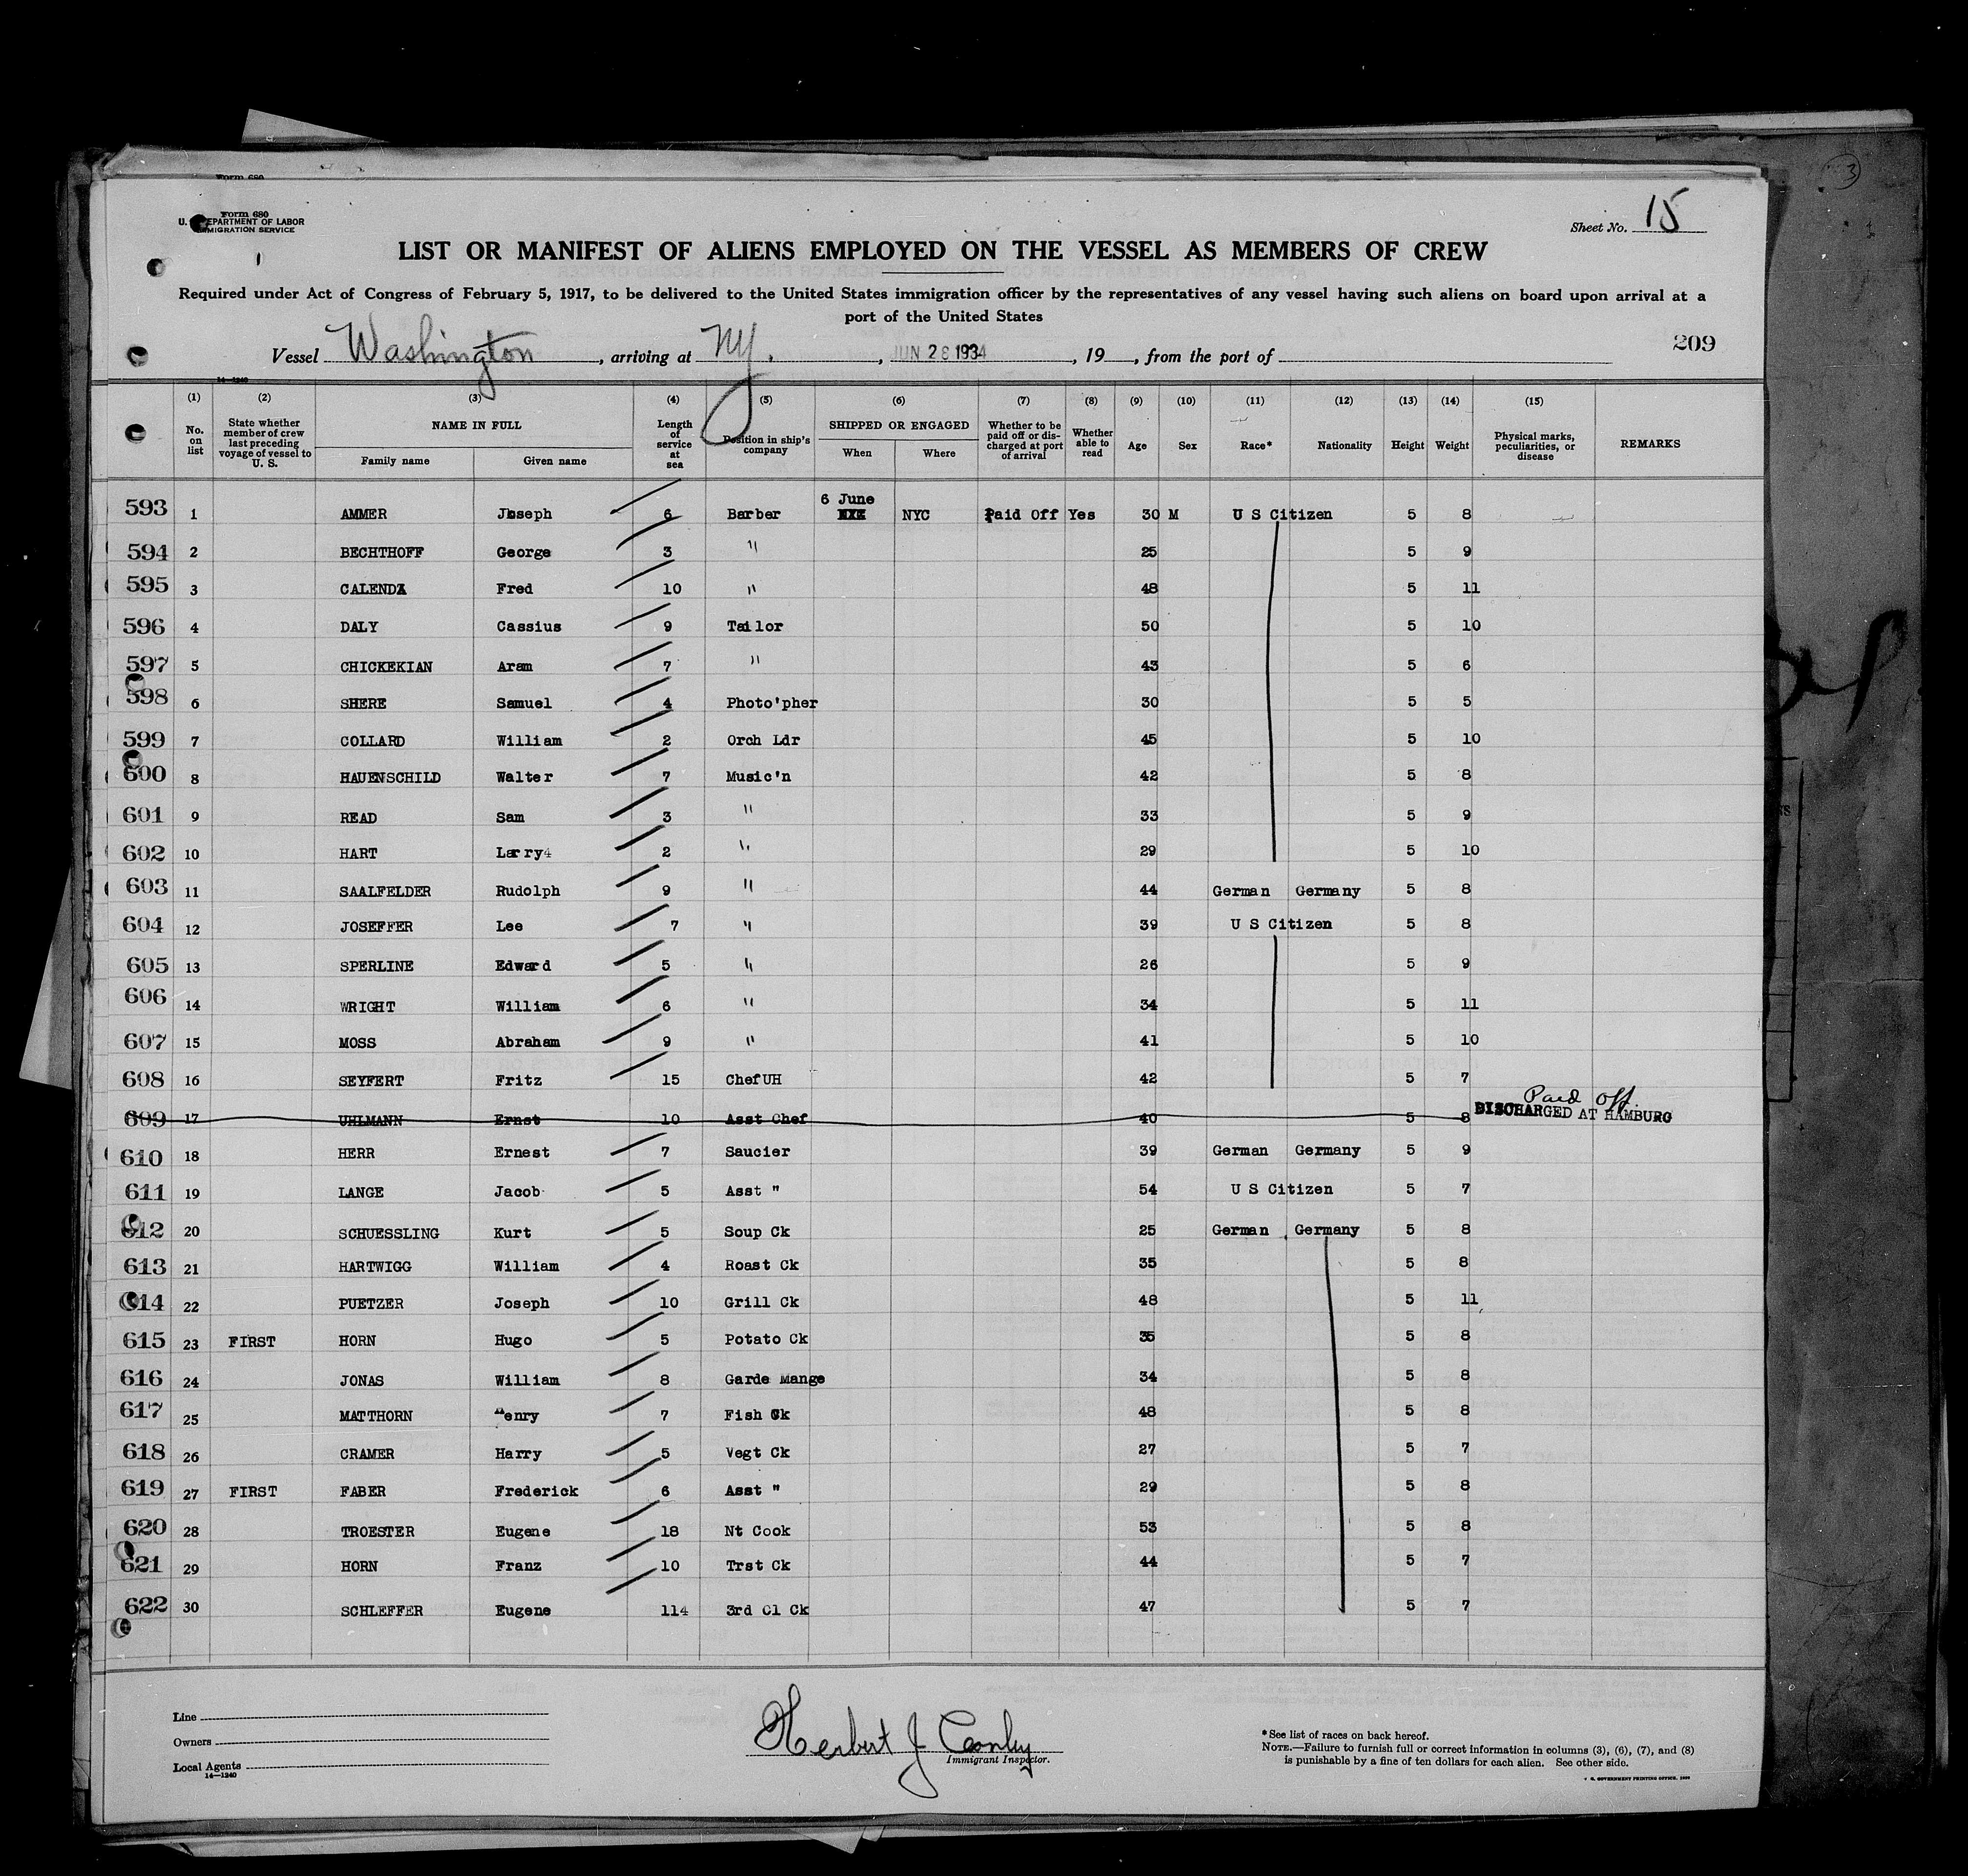 Form 680
Form 680
U. DEPARTMENT OF LABOR
IMMIGRATION SERVICE
Sheet No. 15
LIST OR MANIFEST OF ALIENS EMPLOYED ON THE VESSEL AS MEMBERS OF CREW
Required under Act of Congress of February 5, 1917, to be delivered to the United States immigration officer by the representatives of any vessel having such aliens on board upon arrival at a
port of the United States
209
Vessel Washington, arriving at NY., JUN 28 1934, 19, from the port of
14—1240
(1) (2) (3) (4) (5) (6) (7) (8) (9) (10) (11) (12) (13) (14) (15)
No. on list State whether member of crew last preceding voyage of vessel to U. S. NAME IN FULL Family name Given name Length of service at sea Position in ship's company SHIPPED OR ENGAGED When Where Whether to be paid off or discharged at port of arrival Whether able to read Age Sex Race* Nationality Height Weight Physical marks, peculiarities, or disease REMARKS
593 1 AMMER Joseph 6 Barber 6 June NYC Paid Off Yes 30 M U S Citizen 5 8
594 2 BECHTHOFF George 3 " 25 5 9
595 3 CALENDA Fred 10 " 48 5 11
596 4 DALY Cassius 9 Tailor 50 5 10
597 5 CHICKEKIAN Aram 7 " 43 5 6
598 6 SHERE Samuel 4 Photo'pher 30 5 5
599 7 COLLARD William 2 Orch Ldr 45 5 10
600 8 HAUENSCHILD Walter 7 Music'n 42 5 8
601 9 READ Sam 3 " 33 5 9
602 10 HART Larry4 2 " 29 5 10
603 11 SAALFELDER Rudolph 9 " 44 German Germany 5 8
604 12 JOSEFFER Lee 7 " 39 U S Citizen 5 8
605 13 SPERLINE Edward 5 " 26 5 9
606 14 WRIGHT William 6 " 34 5 11
607 15 MOSS Abraham 9 " 41 5 10
608 16 SEYFERT Fritz 15 ChefUH 42 5 7
Paid off.
609 17 UHLMANN Ernst 10 Asst Chef 40 5 8 DISCHARGED AT HAMBURG
610 18 HERR Ernest 7 Saucier 39 German Germany 5 9
611 19 LANGE Jacob 5 Asst " 54 U S Citizen 5 7
612 20 SCHUESSLING Kurt 5 Soup Ck 25 German Germany 5 8
613 21 HARTWIGG William 4 Roast Ck 35 5 8
614 22 PUETZER Joseph 10 Grill Ck 48 5 11
615 23 FIRST HORN Hugo 5 Potato Ck 35 5 8
616 24 JONAS William 8 Garde Mange 34 5 8
617 25 MATTHORN Henry 7 Fish Ck 48 5 8
618 26 CRAMER Harry 5 Vegt Ck 27 5 7
619 27 FIRST FABER Frederick 6 Asst " 29 5 8
620 28 TROESTER Eugene 18 Nt Cook 53 5 8
621 29 HORN Franz 10 Trst Ck 44 5 7
622 30 SCHLEFFER Eugene 114 3rd Cl Ck 47 5 7
Line
Owners
Local Agents
14—1240
Herbert J Conly
Immigrant Inspector.
*See list of races on back hereof.
NOTE.—Failure to furnish full or correct information in columns (3), (6), (7), and (8)
is punishable by a fine of ten dollars for each alien. See other side.